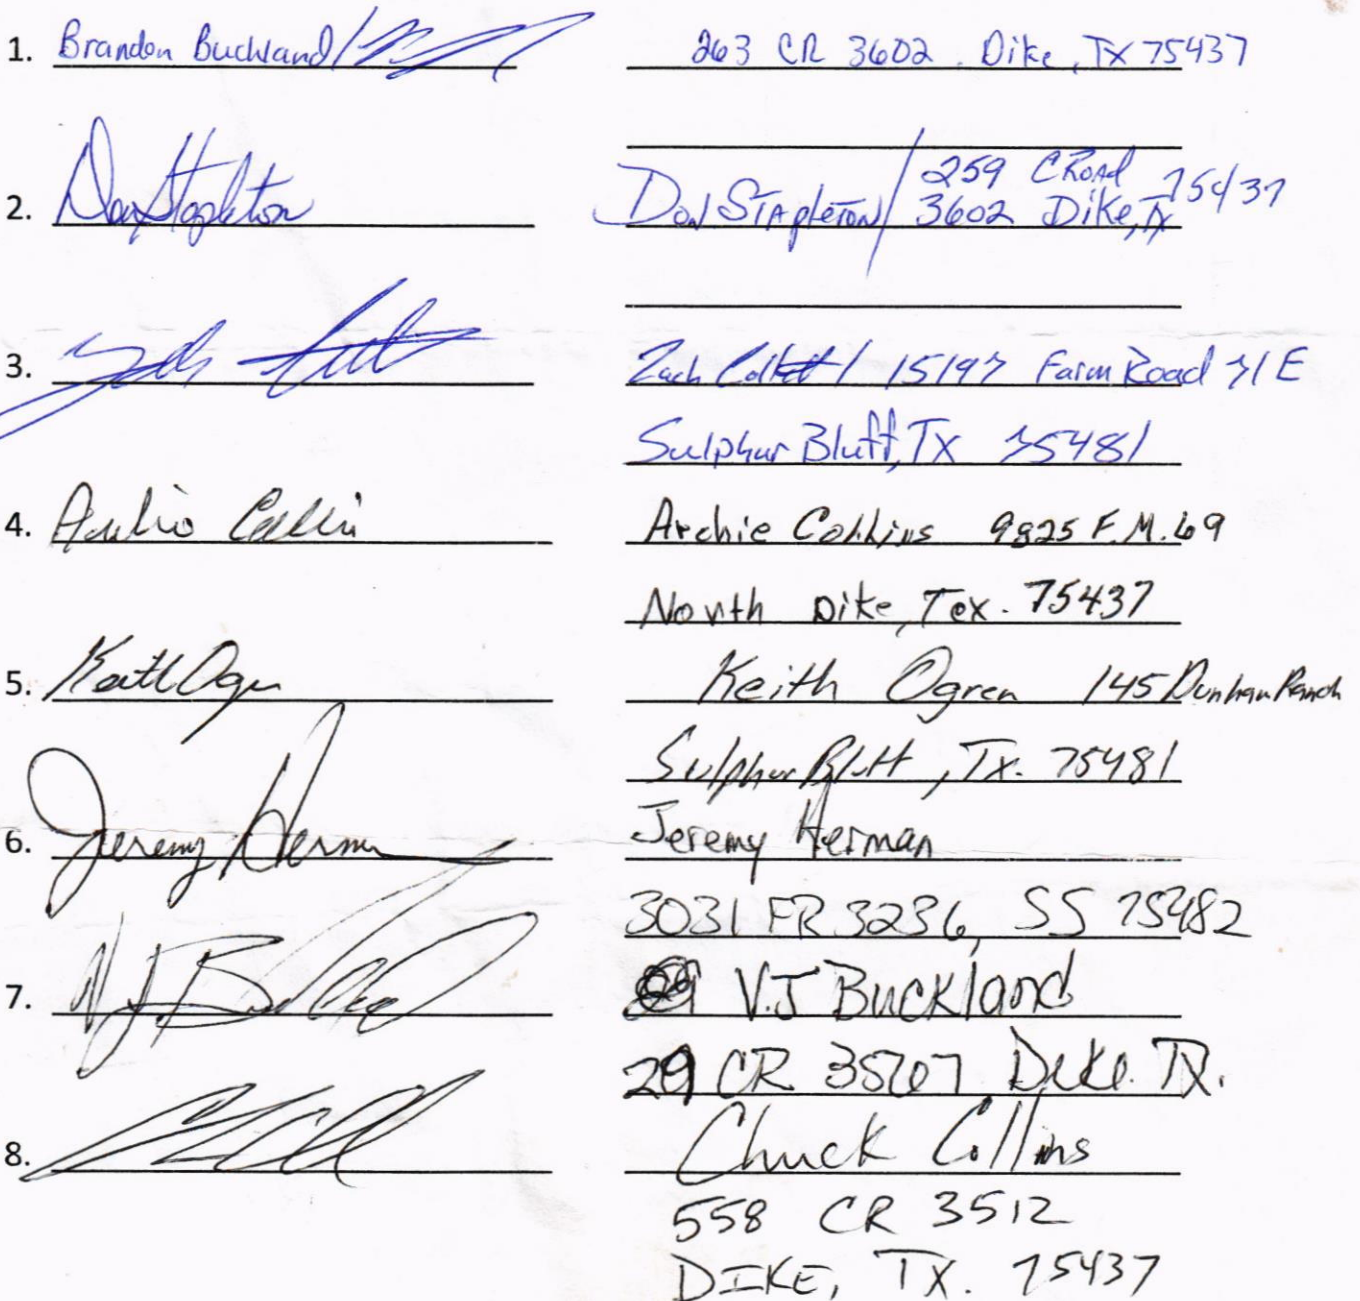 1. Brandon Buckland/ 263 CR 3602. Dike, TX 75437
2. Don Stapleton Don Stapleton/ 259 C Road 75437
3602 Dike, Tx
3. Zach / 15197 Farm Road 71 E
Sulphur Bluff, Tx 75481
4. Archie Collins Archie Collins 9825 F.M. 69
North Dike, Tex. 75437
5. Keith Ogren Keith Ogren 145 Dunham Ranch
Sulphur Bluff, Tx. 75481
6. Jeremy Herman Jeremy Herman
3031 FR 3236, SS 75482
7. V.J. Buckland V.J Buckland
29 CR 3507 Dike. TX.
8. Chuck Collins
558 CR 3512
DIKE, TX. 75437